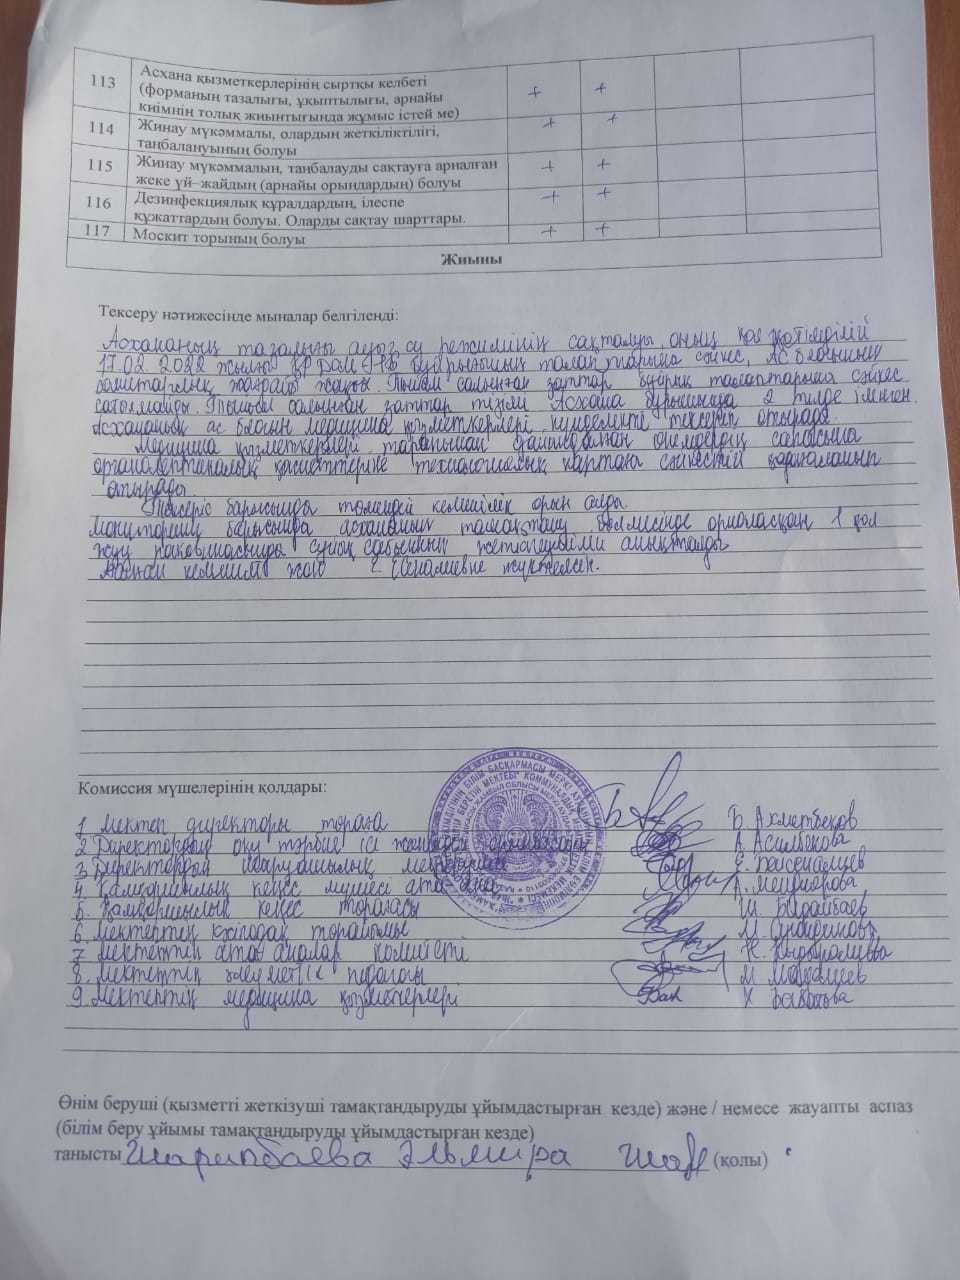 113 Асхана қызметкерлерінің сыртқы келбеті + +
(форманың тазалығы, ұқыптылығы, арнайы
киімнің толық жиынтығында жұмыс істей ме)
114 Жинау мүкәммалы, олардың жеткіліктілігі, + +
таңбалануының болуы
115 Жинау мүкәммалын, таңбалауды сақтауға арналған + +
жеке үй–жайдың (арнайы орындардың) болуы
116 Дезинфекциялық құралдардың, ілеспе + +
құжаттардың болуы. Оларды сақтау шарттары.
117 Москит торының болуы + +
Жиыны
Тексеру нәтижесінде мыналар белгіленді:
Асхананың тазалығы ауыз су режимінің сақталуы, оның қол жетімділігі
17.02. 2022 жылғы ҚР бұйрығының талаптарына сәйкес, Ас блогының
санитарлық жағдайы жақсы. Тыйым салынған заттар бұйрық талаптарына сәйкес
сатылмайды. Тыйым салынған заттар тізімі Асхана бұрышында 2 тілде ілінген.
Асхананың ас блогын медицина қызметкерлері күнделікті тексеріп отырады.
Медицина қызметкерлері тарапынан дайындалған өнімдердің сапасына
органолептикалық қасиеттеріне технологиялық картаға сәйкестігі қадағаланып
отырады.
Тексеріс барысында төмендегі кемшілік орын алды.
Мониторинг барысында асхананың тамақтану бөлмесінде орналасқан 1 қол
жуу раковинасында сұйық сабынның жетіспейтіні анықталды
кемшілікті жою жүктелсін.
Комиссия мүшелерінің қолдары:
1. Мектеп директоры төраға Б. Ахметбеков
2 Директордың оқу тәрбие ісі жөніндегі орынбасары А. Асылбекова
3. Директордың шаруашылық Е. Бейсеналиев
4. Қамқоршылық кеңес мүшесі ата-ана
5. Қамқоршылық кеңес төрағасы Ш. Бидайбаев
6. Мектептің кәсіподақ төрайымы М.
7 Мектептің ата-аналар комитеті Н.
8. Мектептің әлеуметтік педагогы М.
9. Мектептің медицина қызметкерлері Х
Өнім беруші (қызметті жеткізуші тамақтандыруды ұйымдастырған кезде) және / немесе жауапты аспаз
(білім беру ұйымы тамақтандыруды ұйымдастырған кезде)
танысты Шарипбаева Эльмира (қолы)